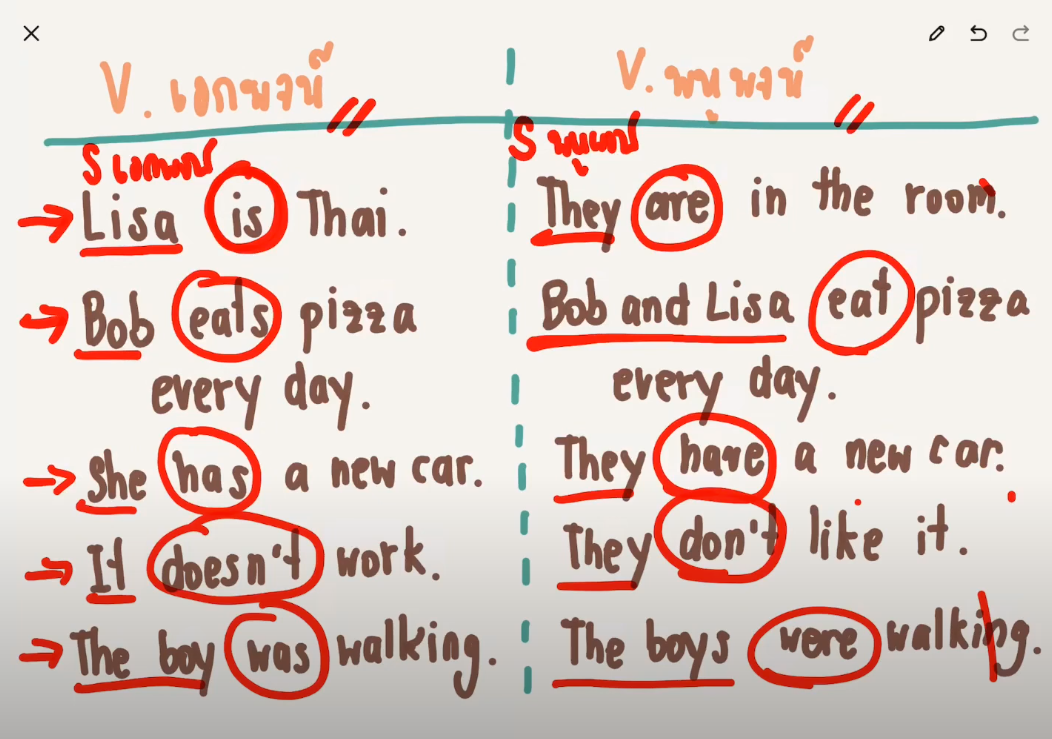 V. เอกพจน์
S เอกพจน์
Lisa is Thai.
Bob eats pizza
every day.
She has a new car.
It doesn't work.
The boy was walking.
V. พหูพจน์
S พหูพจน์
They are in the room.
Bob and Lisa eat pizza
every day.
They have a new car.
They don't like it.
The boys were walking.